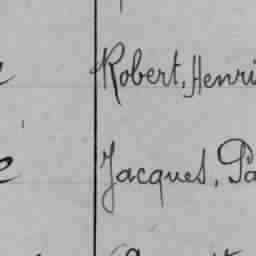 Robert, Henri
Jacques, Pa